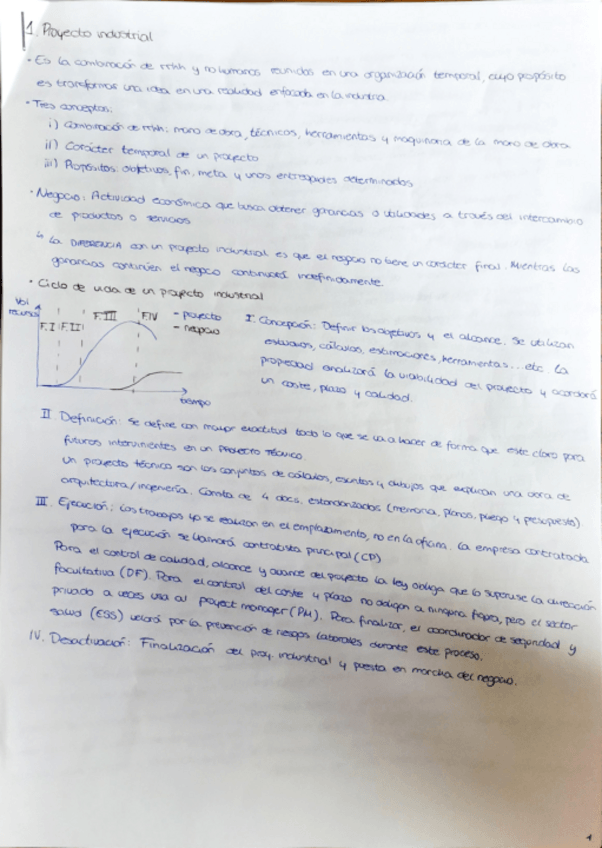 1. Proyecto industrial
· Es la combinación de rrhh y no humanos reunidos en una organización temporal, cuyo propósito
es transformar una idea en una realidad enfocada en la industria.
· Tres conceptos:
i) Combinación de rrhh: mano de obra, técnicos, herramientas y maquinaria de la mano de obra
ii) Carácter temporal de un proyecto
iii) Propósitos: objetivos, fin, meta y unos entregables determinados
· Negocio: Actividad económica que busca obtener ganancias o utilidades a través del intercambio
de productos o servicios
↳ La DIFERENCIA con un proyecto industrial es que el negocio no tiene un carácter final. Mientras las
ganancias continúen el negocio continuará indefinidamente.
· Ciclo de vida de un proyecto industrial
Vol
recursos
F.I F.II F.III F.IV
- proyecto
- negocio
tiempo
I. Concepción: Definir los objetivos y el alcance. Se utilizan
estudios, cálculos, estimaciones, herramientas... etc. La
propiedad analizará la viabilidad del proyecto y acordará
un coste, plazo y calidad.
II. Definición: Se define con mayor exactitud todo lo que se va a hacer de forma que este claro para
futuros intervinientes en un PROYECTO TÉCNICO.
Un proyecto técnico son los conjuntos de cálculos, escritos y dibujos que explican una obra de
arquitectura/ingeniería. Consta de 4 docs. estandarizados (memoria, planos, pliego y presupuesto)
III. Ejecución: Los trabajos ya se realizan en el emplazamiento, no en la oficina. La empresa contratada
para la ejecución se llamará contratista principal (CP)
Para el control de calidad, alcance y avance del proyecto la ley obliga que lo supervise la dirección
facultativa (DF). Para el control del coste y plazo no obligan a ninguna figura, pero el sector
privado a veces usa al project manager (PM). Para finalizar, el coordinador de seguridad y
salud (ESS) velará por la prevención de riesgos laborales durante este proceso.
IV. Desactivación: Finalización del proy. industrial y puesta en marcha del negocio.
1